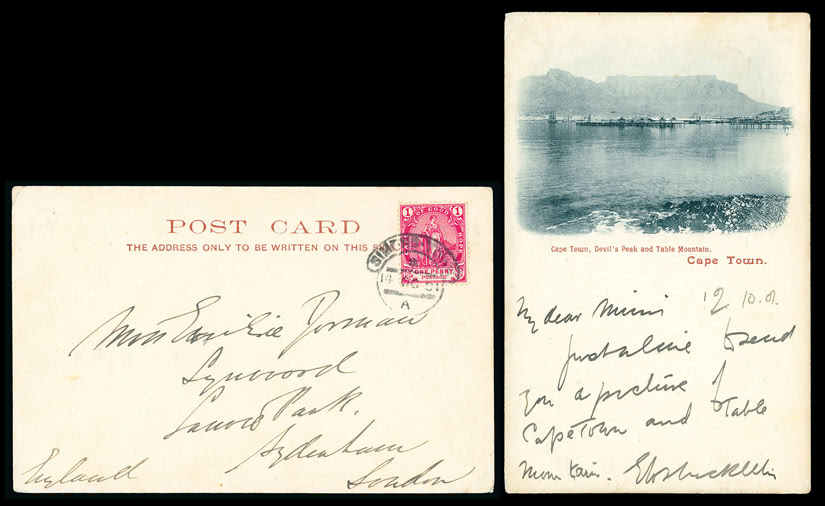 POST CARD
THE ADDRESS ONLY TO BE WRITTEN ON THIS
1 OF GOOD 1
HOPE
ONE PENNY
POSTAGE
14 OC 01
A
Miss Emilie Dorman
Lynwood
Lawrie Park.
Sydenham
England London
Cape Town, Devil's Peak and Table Mountain.
Cape Town.
My dear Mimi 12.10.01.
Just a line to send
you a picture of
Cape Town and Table
Mountain.